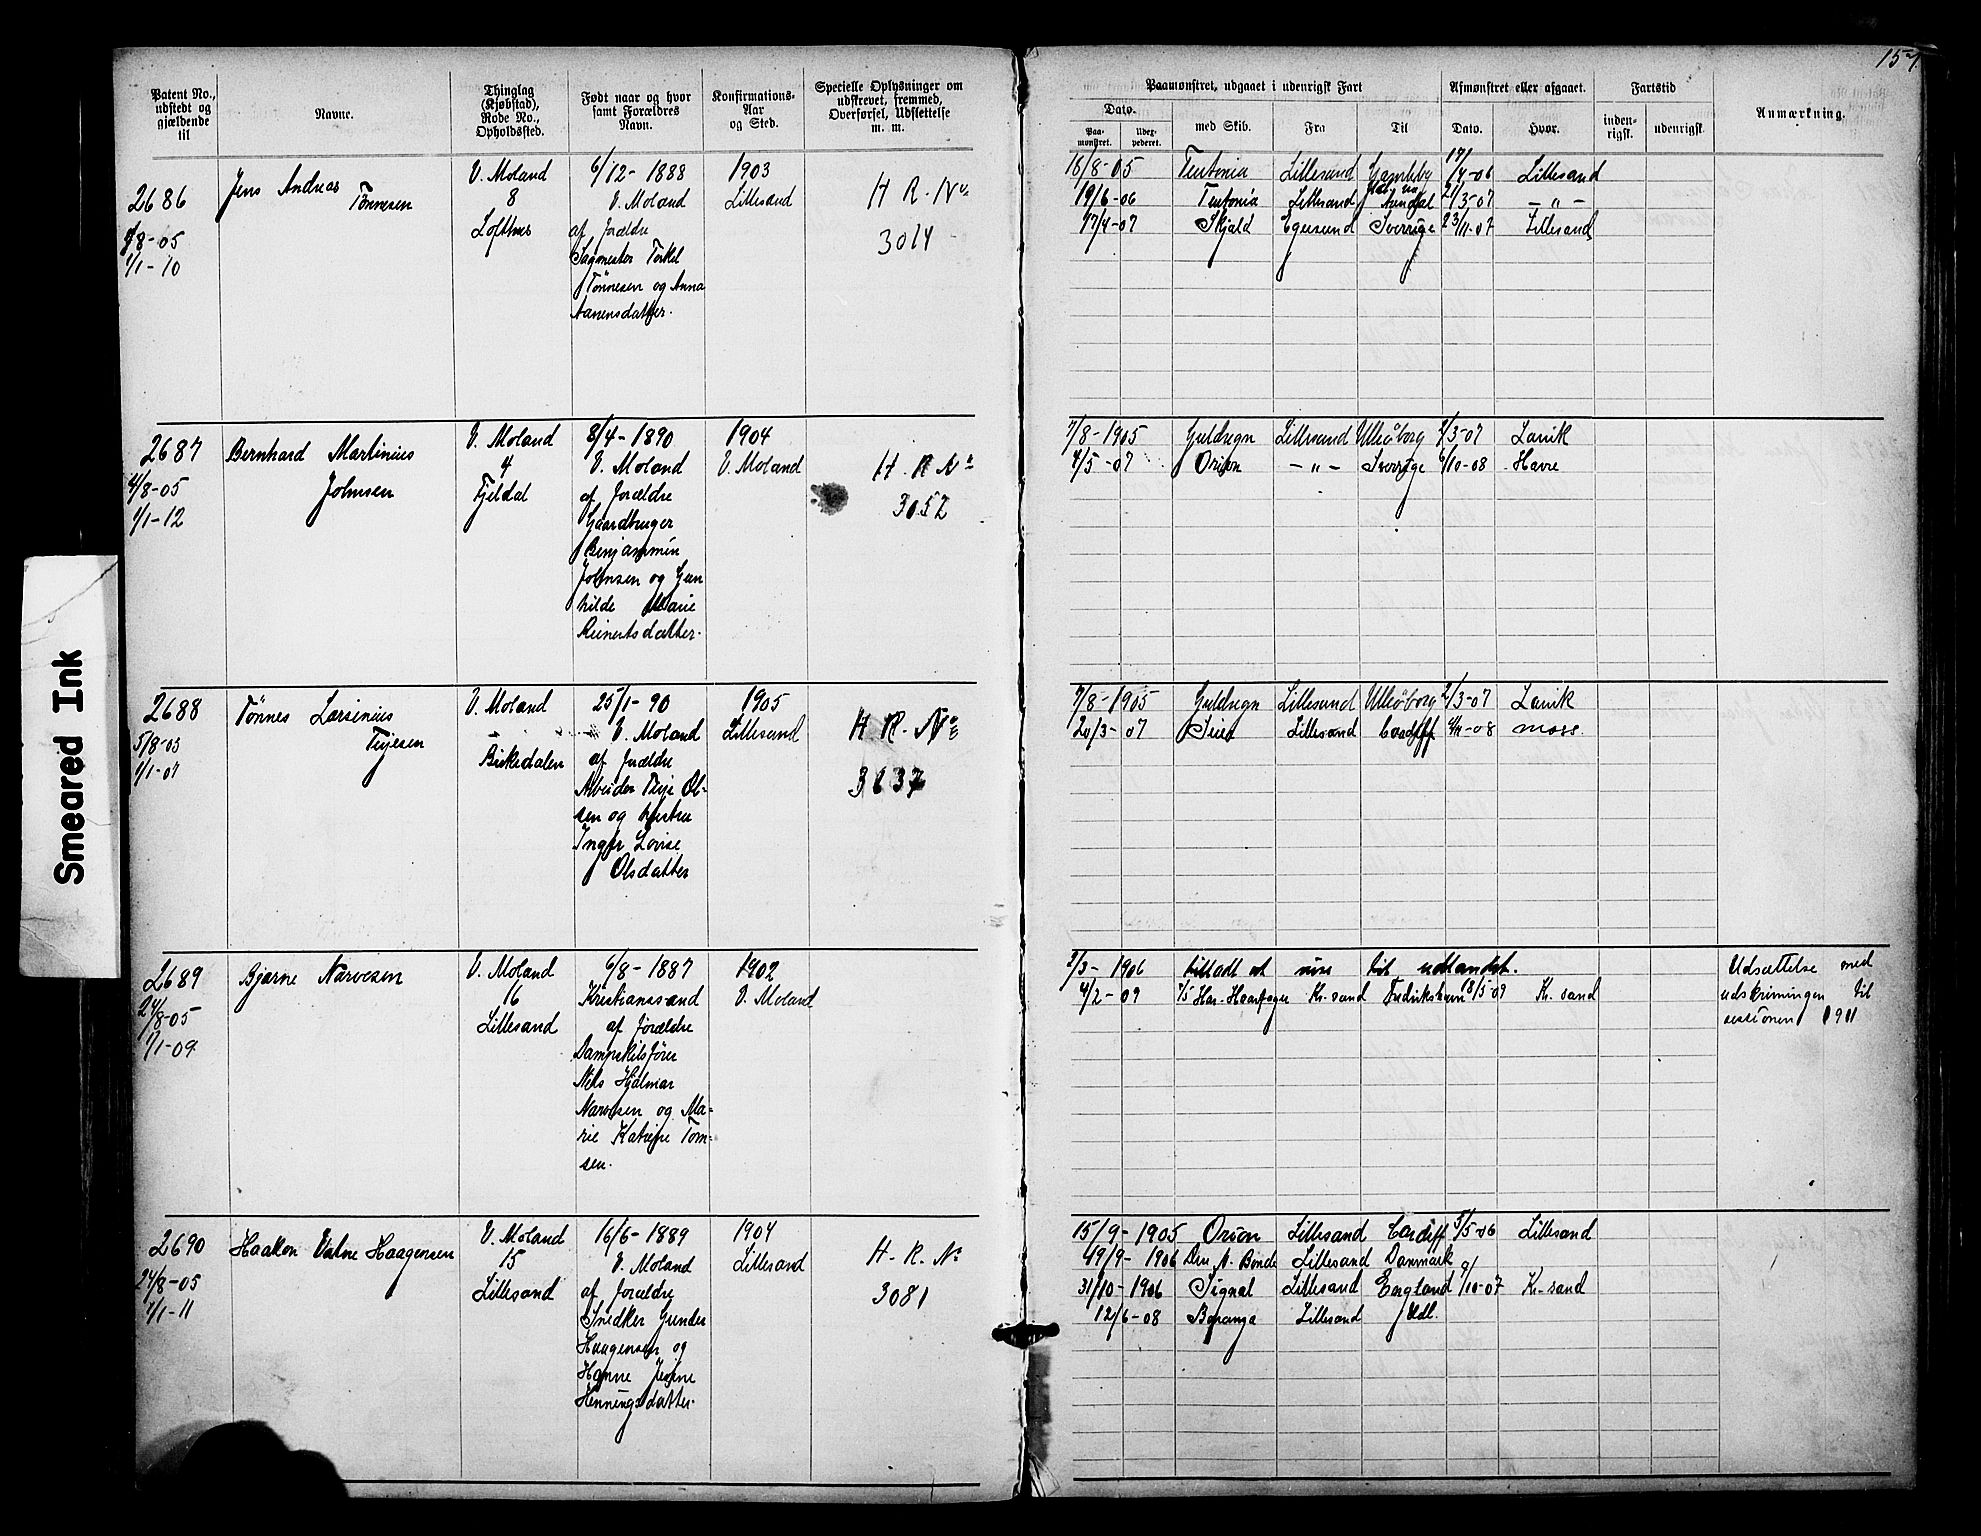 Smeared Ink
Patent No.,
udstedt og
gjældende
til
Navne.
Thinglag
(Kjøbstad),
Rode No.,
Opholdssted.
Født naar og hvor
samt Forældres
Navn.
Konfirmations-
Aar
og Sted.
Specielle Oplysninger om
udskrevet, fremmed,
Overførsel, Udslettelse
m. m.
2686
8-05
1/1-10
Jens Andreas
Tønnesen
V. Moland
8
Lofthus
6/12-1888
V. Moland
af forældre
Sagmester Terkel
Tönnesen og Anna
Aanensdatter.
1903
Lillesand
H R. No
3014
2687
4/8-05
1/1-12
Bernhard Martinius
Johnsen
V. Moland
4
Fjeldal
8/4-1890
V. Moland
af forældre
Gaardbruger
Benjammin
Johnsen og Gun
hilde Marie
Reinertsdatter.
1904
V. Moland
H. R No
3052
2688
5/8-05
1/1-07
Tönnes Larsenius
Terjesen
V. Moland
-
Birkedalen
25/1-90
V. Moland
af forældre
Arbeider Terje Ol-
sen og hustru
Inger Lovise
Olsdatter
1905
Lillesand
H R. No
3637
2689
24/8-05
1/1-09
Bjarne Narvesen
V. Moland
16
Lillesand
6/8-1887
Kristianssand
af forældre
Dampskibsförer
Nels Hjalmar
Narvesen og Ma-
rie Katrine Tom-
sen.
1902
V. Moland
2690
24/8-05
1/1-11
Haakon Valne Haagensen
V. Moland
15
Lillesand
16/6-1889
V. Moland
af forældre
Snedker Gunder
Haagensen og
Hanne Jensine
Henningsdatter.
1904
Lillesand
H. R. No
3081
157
Paamønstret, udgaaet i udenrigsk Fart
Afmønstret eller afgaaet.
Fartstid
Anmærkning.
Dato.
Paa-
mønstret.
Udex-
pederet.
med Skib.
Fra
Til
Dato.
Hvor.
inden-
rigsk.
udenrigsk.
16/8-05 Teutonia Lillesand 17/4-06 Lillesand
19/6-06 Teutonia Lillesand Arendal 21/3-07 - " -
17/4-07 Skjald Egersund Sverrige 23/11-07 Lillesand
7/8-1905 Guldregn Lillesand Uleåborg 2/3-07 Larvik
4/5-07 Orion - " - Sverrige 6/10-08 Havre
7/8-1905 Guldregn Lillesand Uleåborg 2/3-07 Larvik
20/3-07 Lillesand Cardiff 4/11-08 Moss.
3/3-1906 tilladt at rejse til udlandet.
4/2-09 Kr. sand Fredrikshavn 18/5-09 Kr. sand
Udsættelse med
udskrivningen til
sessionen 1911
15/9-1905 Orion Lillesand Cardiff 5/5-06 Lillesand
19/9-1906 Den N. Bonde Lillesand Danmark
31/10-1906 Signal Lillesand England 9/10-07 Kr. sand
12/6-08 Lillesand Udl.